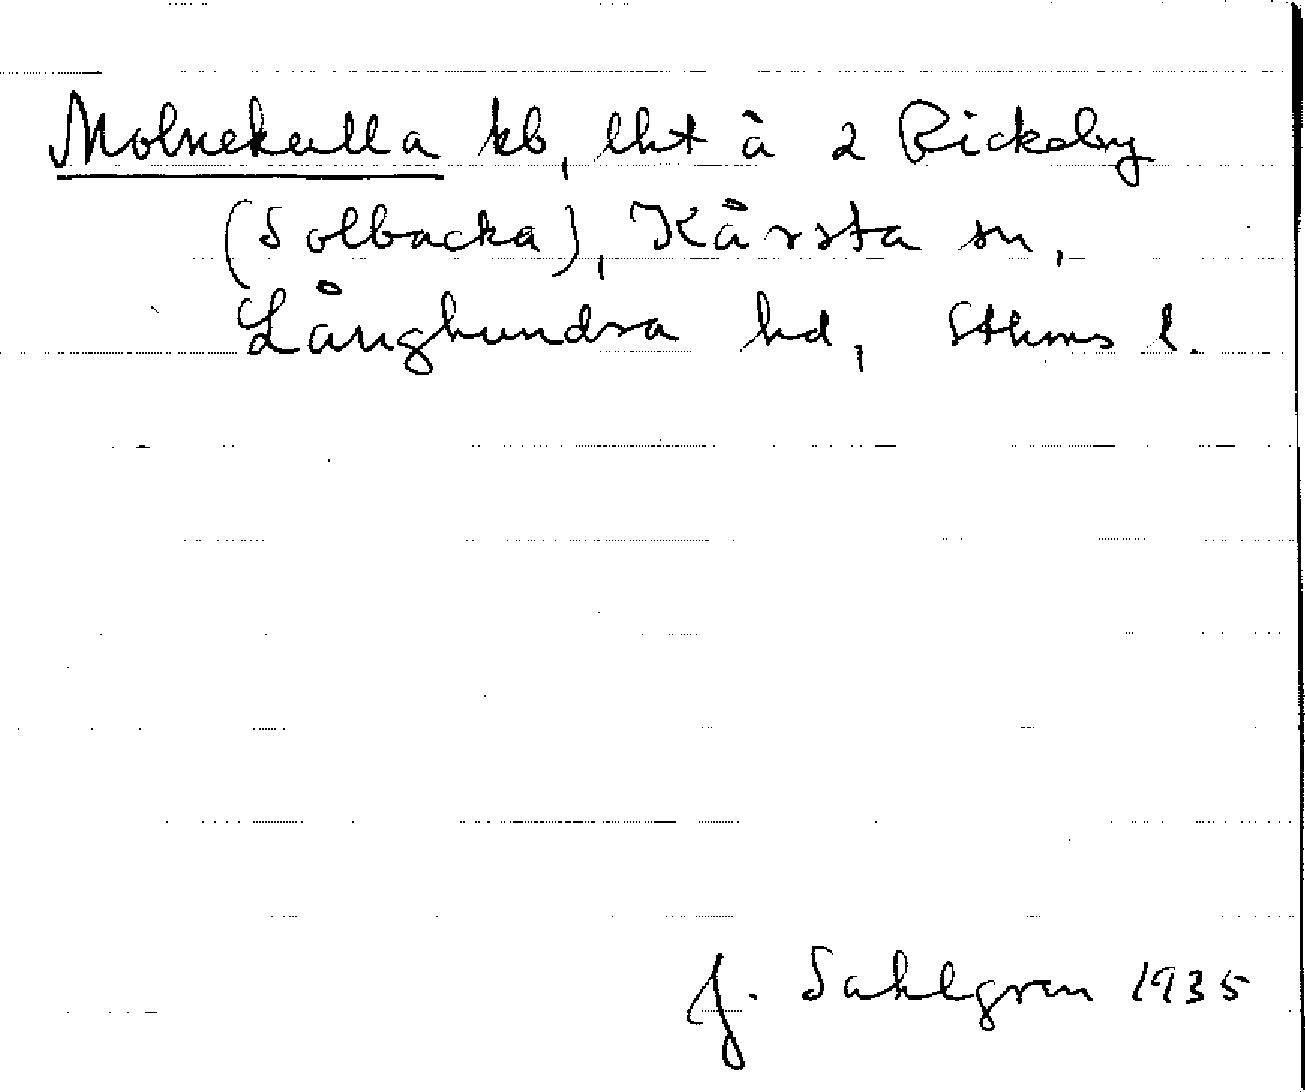 Molnekulla kb, lht å 2 Rickeby
(Solbacka), Kårsta sn,
Långhundra hd, Sthms l.
J. Sahlgren 1935